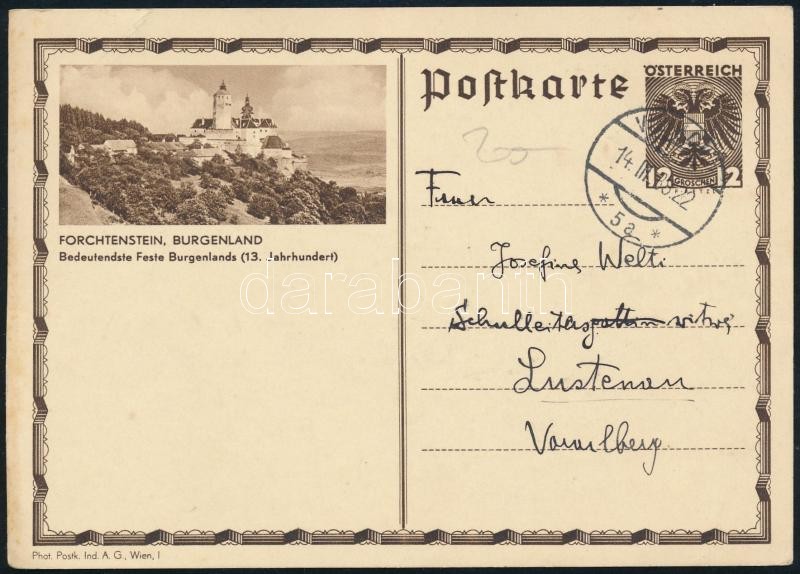 Postkarte
ÖSTERREICH
12 GROSCHEN 12
14. III
22
* 5a *
FORCHTENSTEIN, BURGENLAND
Bedeutendste Feste Burgenlands (13. Jahrhundert)
Frau
Josefine Welti
Schulleitersgattin witwe
Lustenau
Vorarlberg
darabanth
Phot. Postk. Ind. A. G., Wien, I